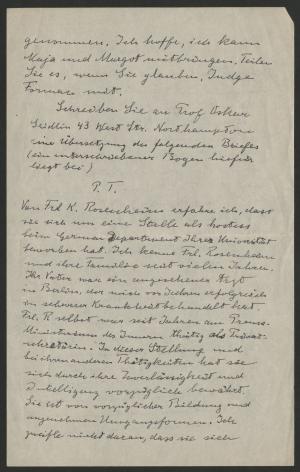 genommen. Ich hoffe, ich kann
Maja und Margot mitbringen. Teilen
Sie es, wenn Sie glauben, Judge
Forman mit.
Schreiben Sie an Prof Oskar
Seidlin 43 West Str. Northampton
eine Übersetzung des folgenden Briefes
(ein unterschriebener Bogen hiefür
liegt bei)
P. T.
Von Frl K. Rosenheim erfahre ich, dass
sie sich um eine Stelle als hostess
beim German Department Ihrer Universität
beworben hat. Ich kenne Frl. Rosenheim
und ihre Familie seit vielen Jahren.
Ihr Vater war ein angesehener Arzt
in Berlin, der mich vor Jahren erfolgreich
in schwerer Krankheit behandelt hat.
Frl. R selbst war seit Jahren am Preuss.
Ministerium des Innern thätig als Privat-
sekretärin. In dieser Stellung und
bei ihren anderen Thätigkeiten hat sie
sich durch ihre Zuverlässigkeit und
Intelligenz vorzüglich bewährt.
Sie ist von vorzüglicher Bildung und
angenehmen Umgangsformen. Ich
zweifle nicht daran, dass sie sich